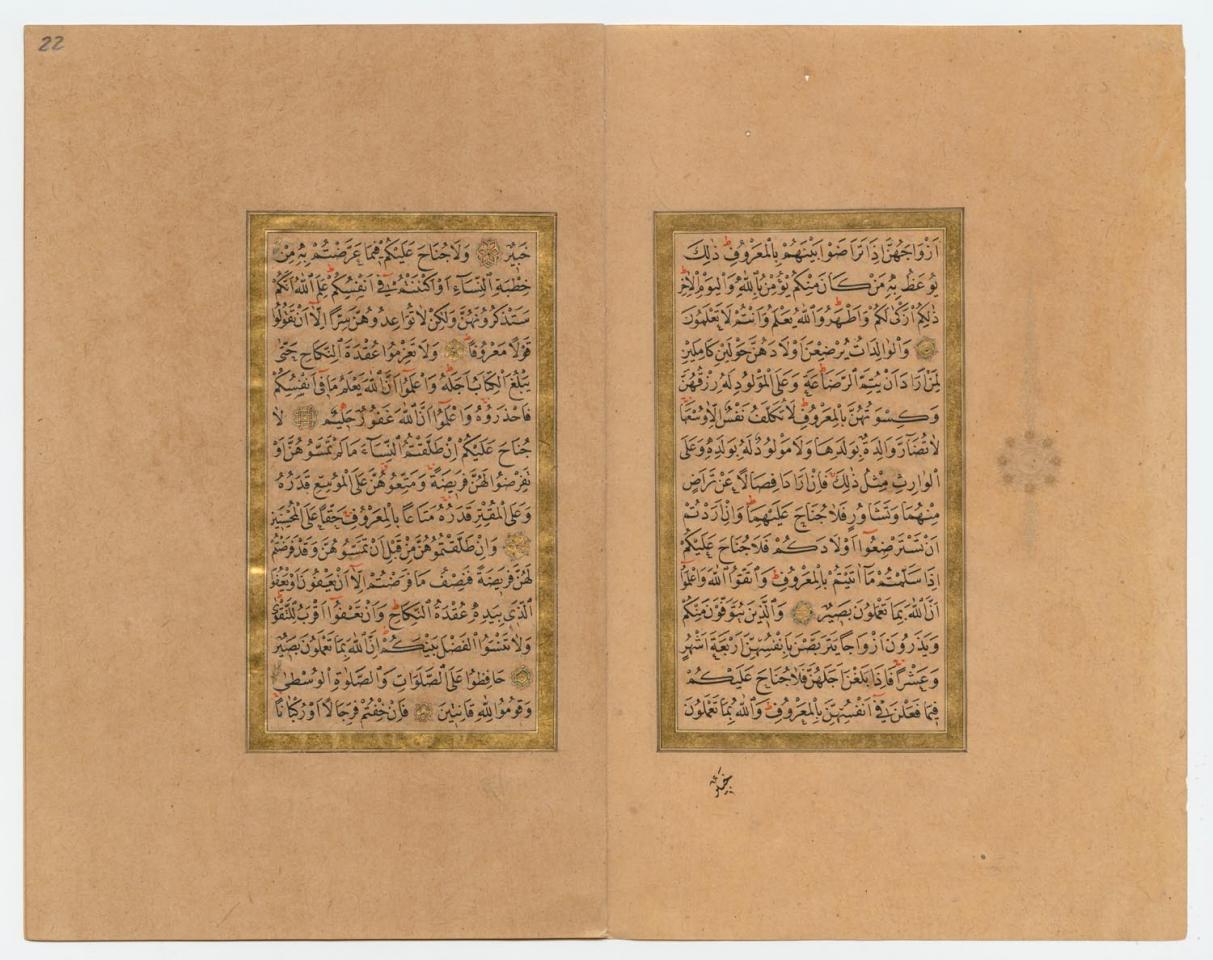 اَزْوَاجَهُنَّ اِذَا تَرَاضَوْا بَيْنَهُمْ بِالْمَعْرُوفِ ذٰلِكَ
يُوعَظُ بِهٖ مَنْ كَانَ مِنْكُمْ يُؤْمِنُ بِاللّٰهِ وَالْيَوْمِ الْاٰخِرِ
ذٰلِكُمْ اَزْكٰى لَكُمْ وَاَطْهَرُ وَاللّٰهُ يَعْلَمُ وَاَنْتُمْ لَا تَعْلَمُونَ
وَالْوَالِدَاتُ يُرْضِعْنَ اَوْلَادَهُنَّ حَوْلَيْنِ كَامِلَيْنِ
لِمَنْ اَرَادَ اَنْ يُتِمَّ الرَّضَاعَةَ وَعَلَى الْمَوْلُودِ لَهُ رِزْقُهُنَّ
وَكِسْوَتُهُنَّ بِالْمَعْرُوفِ لَا تُكَلَّفُ نَفْسٌ اِلَّا وُسْعَهَا
لَا تُضَآرَّ وَالِدَةٌ بِوَلَدِهَا وَلَا مَوْلُودٌ لَهُ بِوَلَدِهٖ وَعَلَى
الْوَارِثِ مِثْلُ ذٰلِكَ فَاِنْ اَرَادَا فِصَالًا عَنْ تَرَاضٍ
مِنْهُمَا وَتَشَاوُرٍ فَلَا جُنَاحَ عَلَيْهِمَا وَاِنْ اَرَدْتُمْ
اَنْ تَسْتَرْضِعُوا اَوْلَادَكُمْ فَلَا جُنَاحَ عَلَيْكُمْ
اِذَا سَلَّمْتُمْ مَآ اٰتَيْتُمْ بِالْمَعْرُوفِ وَاتَّقُوا اللّٰهَ وَاعْلَمُوا
اَنَّ اللّٰهَ بِمَا تَعْمَلُونَ بَصِيرٌ وَالَّذِينَ يُتَوَفَّوْنَ مِنْكُمْ
وَيَذَرُونَ اَزْوَاجًا يَتَرَبَّصْنَ بِاَنْفُسِهِنَّ اَرْبَعَةَ اَشْهُرٍ
وَعَشْرًا فَاِذَا بَلَغْنَ اَجَلَهُنَّ فَلَا جُنَاحَ عَلَيْكُمْ
فِيمَا فَعَلْنَ فِى اَنْفُسِهِنَّ بِالْمَعْرُوفِ وَاللّٰهُ بِمَا تَعْمَلُونَ
خَبِيرٌ
22
خَبِيرٌ وَلَا جُنَاحَ عَلَيْكُمْ فِيمَا عَرَّضْتُمْ بِهٖ مِنْ
خِطْبَةِ النِّسَآءِ اَوْ اَكْنَنْتُمْ فِى اَنْفُسِكُمْ عَلِمَ اللّٰهُ اَنَّكُمْ
سَتَذْكُرُونَهُنَّ وَلٰكِنْ لَا تُوَاعِدُوهُنَّ سِرًّا اِلَّا اَنْ تَقُولُوا
قَوْلًا مَعْرُوفًا وَلَا تَعْزِمُوا عُقْدَةَ النِّكَاحِ حَتّٰى
يَبْلُغَ الْكِتَابُ اَجَلَهُ وَاعْلَمُوا اَنَّ اللّٰهَ يَعْلَمُ مَا فِى اَنْفُسِكُمْ
فَاحْذَرُوهُ وَاعْلَمُوا اَنَّ اللّٰهَ غَفُورٌ حَلِيمٌ لَا
جُنَاحَ عَلَيْكُمْ اِنْ طَلَّقْتُمُ النِّسَآءَ مَا لَمْ تَمَسُّوهُنَّ اَوْ
تَفْرِضُوا لَهُنَّ فَرِيضَةً وَمَتِّعُوهُنَّ عَلَى الْمُوسِعِ قَدَرُهُ
وَعَلَى الْمُقْتِرِ قَدَرُهُ مَتَاعًا بِالْمَعْرُوفِ حَقًّا عَلَى الْمُحْسِنِينَ
وَاِنْ طَلَّقْتُمُوهُنَّ مِنْ قَبْلِ اَنْ تَمَسُّوهُنَّ وَقَدْ فَرَضْتُمْ
لَهُنَّ فَرِيضَةً فَنِصْفُ مَا فَرَضْتُمْ اِلَّا اَنْ يَعْفُونَ اَوْ يَعْفُوَا
الَّذِى بِيَدِهٖ عُقْدَةُ النِّكَاحِ وَاَنْ تَعْفُوا اَقْرَبُ لِلتَّقْوٰى
وَلَا تَنْسَوُا الْفَضْلَ بَيْنَكُمْ اِنَّ اللّٰهَ بِمَا تَعْمَلُونَ بَصِيرٌ
حَافِظُوا عَلَى الصَّلَوَاتِ وَالصَّلٰوةِ الْوُسْطٰى
وَقُومُوا لِلّٰهِ قَانِتِينَ فَاِنْ خِفْتُمْ فَرِجَالًا اَوْ رُكْبَانًا